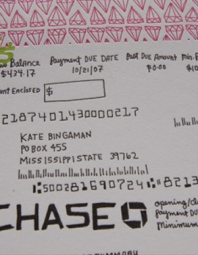 Balance Payment DUE DATE Past Due Amount Min.
$434.17 10/21/07 $0.00 $10
nt Enclosed $
21874014300000217
KATE BINGAMAN
PO BOX 455
MISSISSIPPI STATE 39762
500281690724 8213
CHASE
opening/cl
payment DU
minimum